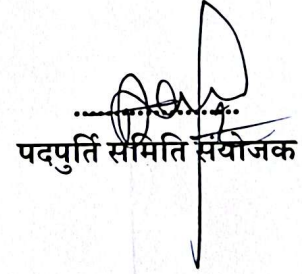 पदपुर्ति समिति संयोजक